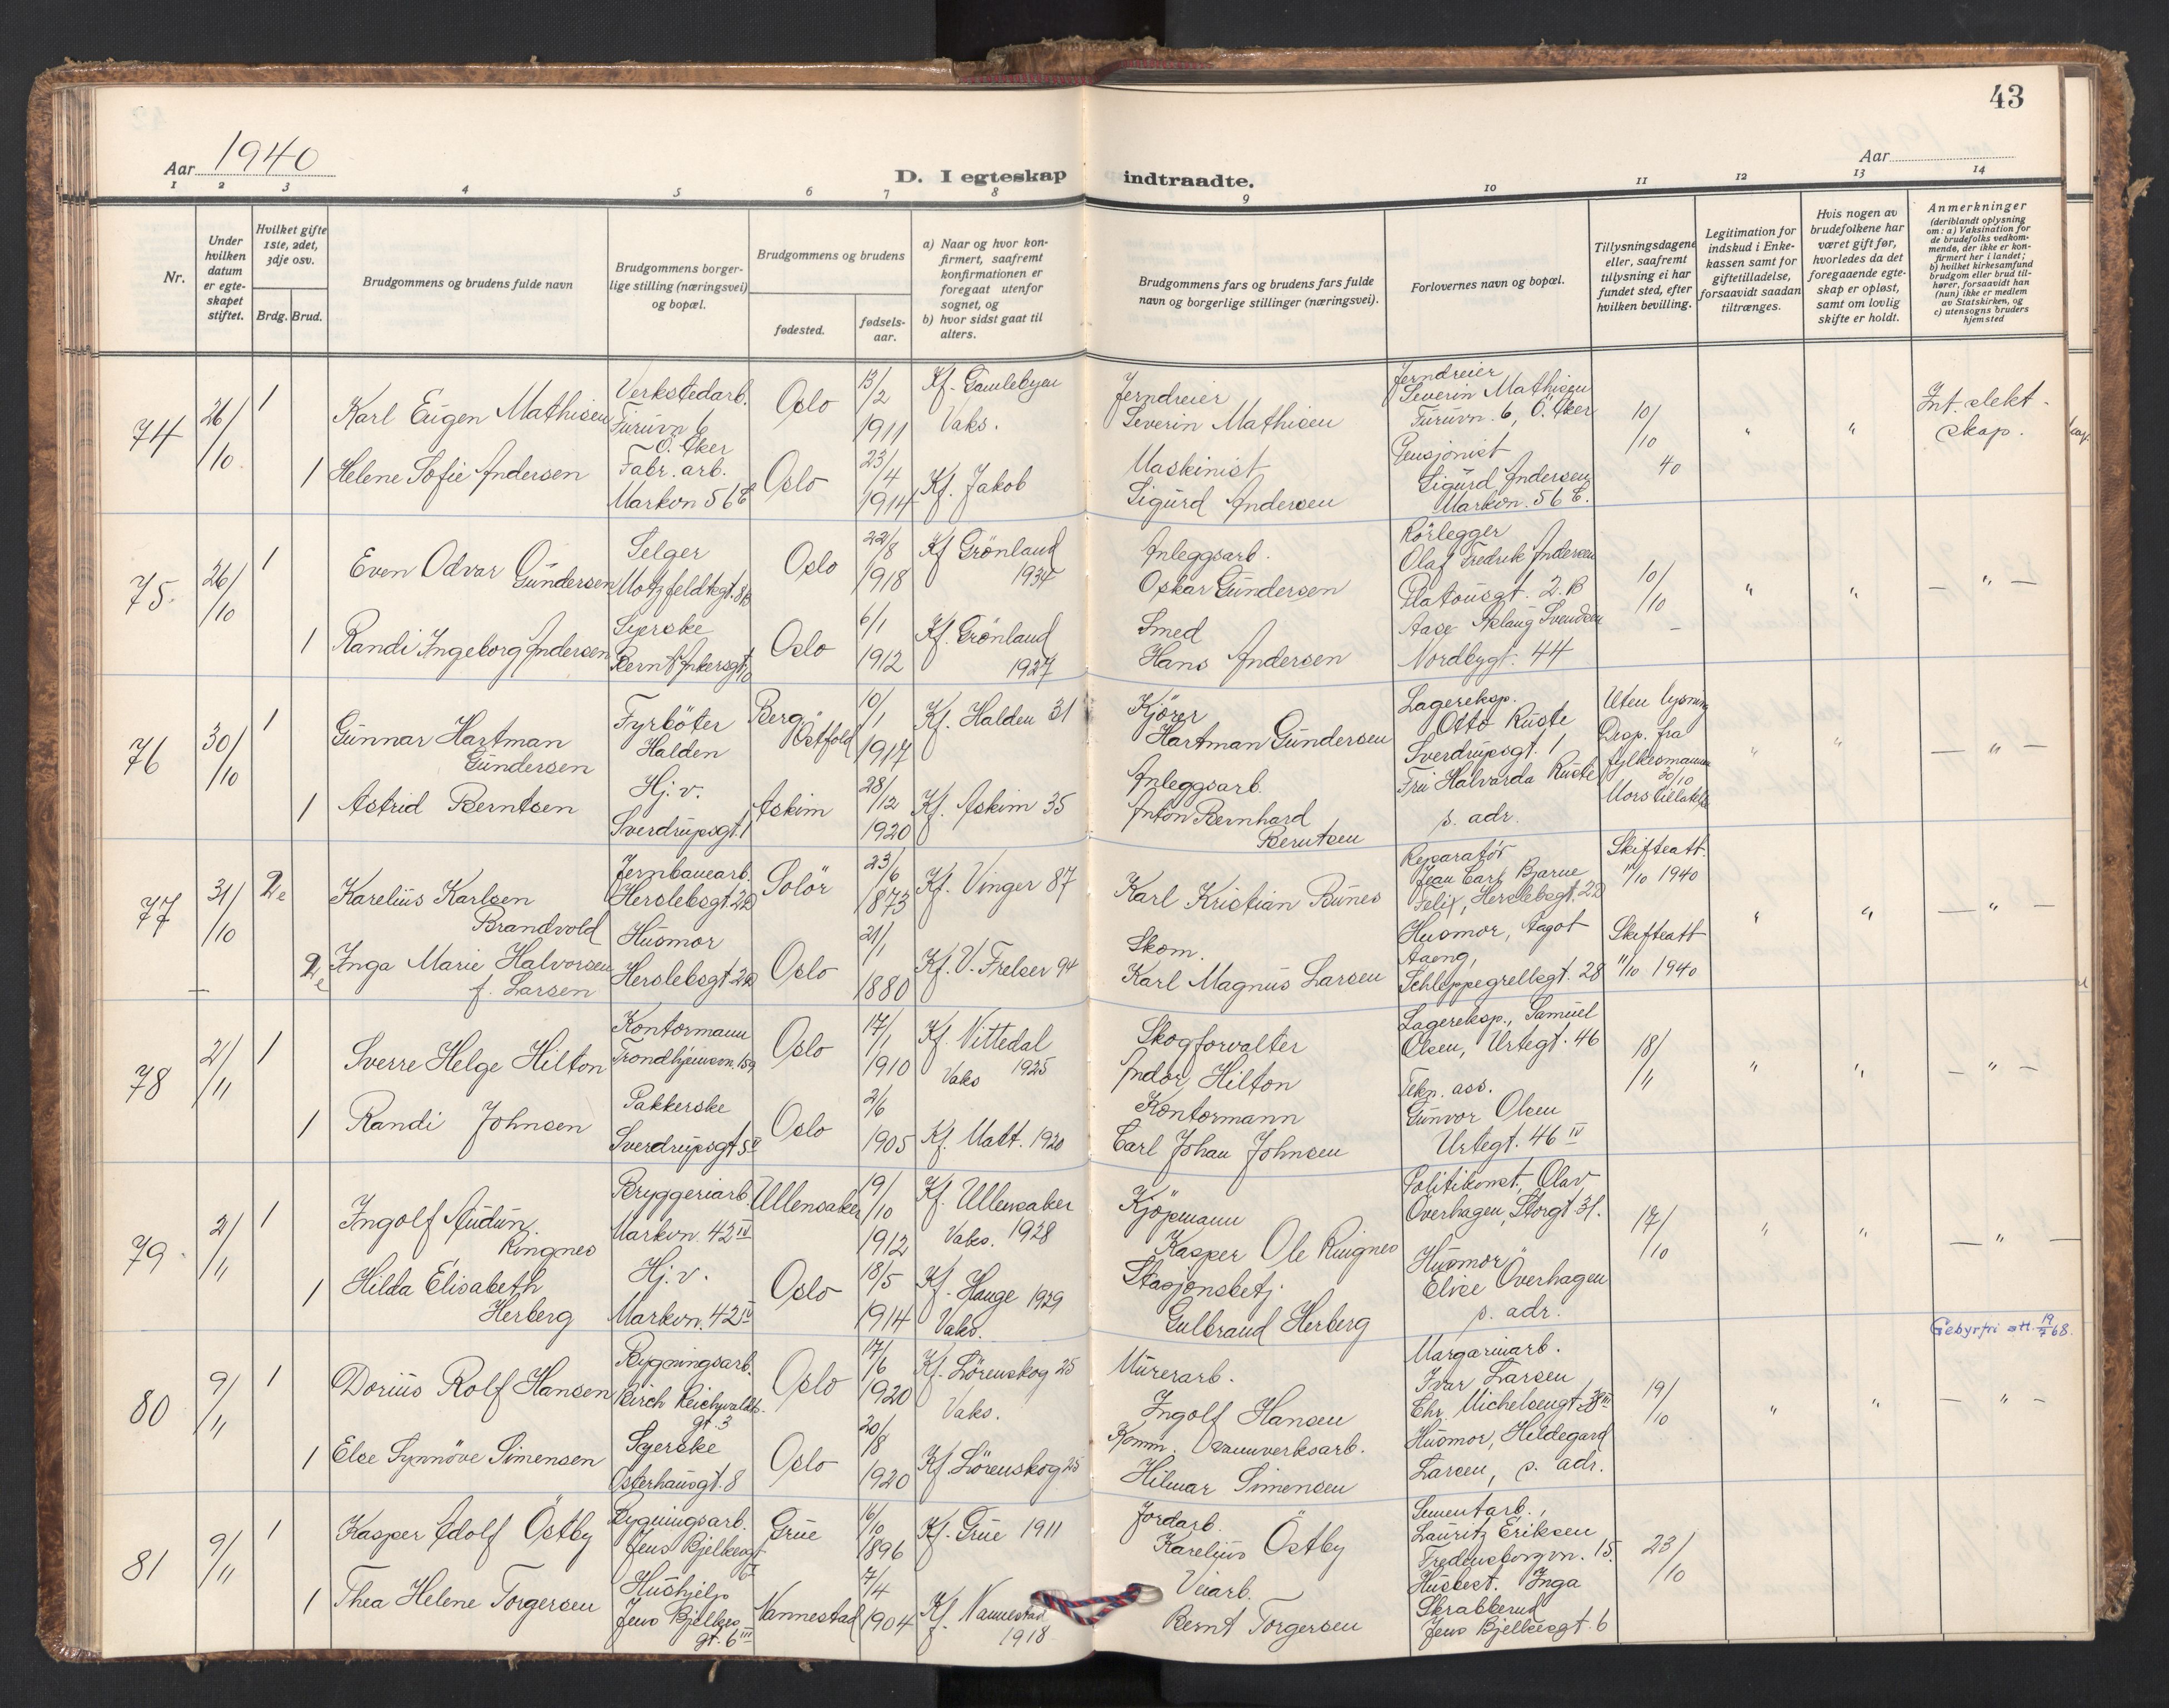 43
Aar 1940
Aar
D. I egteskap indtraadte.
1 2 3 4 5 6 7 8 9 10 11 12 13 14
Nr.
Under hvilken datum er egteskapet stiftet.
Hvilket gifte 1ste, 2det, 3dje osv.
Brdg. Brud.
Brudgommens og brudens fulde navn
Brudgommens borgerlige stilling (næringsvei) og bopæl.
Brudgommens og brudens
fødested.
fødselsaar.
a) Naar og hvor konfirmert, saafremt konfirmationen er foregaat utenfor sognet, og
b) hvor sidst gaat til alters.
Brudgommens fars og brudens fars fulde navn og borgerlige stillinger (næringsvei).
Forlovernes navn og bopæl.
Tillysningsdagene eller, saafremt tillysning ei har fundet sted, efter hvilken bevilling.
Legitimation for indskud i Enkekassen samt for giftetilladelse, forsaavidt saadan tiltrænges.
Hvis nogen av brudefolkene har været gift før, hvorledes da det foregaaende egteskap er opløst, samt om lovlig skifte er holdt.
Anmerkninger (deriblandt oplysning om: a) Vaksination for de brudefolks vedkommende, der ikke er konfirmert her i landet; b) hvilket kirkesamfund brudgom eller brud tilhører, forsaavidt han (hun) ikke er medlem av Statskirken, og c) utensogns bruders hjemsted
74 26/10 1 Karl Eugen Mathisen Verkstedarb. Furuvn 6 Ö. Aker Oslo 13/2 1911 Kf. Gamlebyen Vaks. Jerndreier Severin Mathisen Jerndreier Severin Mathisen Furuvn. 6, Ö. Aker 10/10 40 " " Int. slektskap.
1 Helene Sofie Andersen Fabr. arb. Markvn 56 E Oslo 23/4 1914 Kf. Jakob Maskinist Sigurd Andersen Pensjonist Sigurd Andersen Markvn. 56 E.
75. 26/10 1 Even Odvar Gundersen Selger Motzfeldtsgt. 8B Oslo 22/8 1918 Kf Grönland 1934 Anleggsarb. Oskar Gundersen Rörlegger Olaf Fredrik Andersen Platousgt. 2.B 10/10 " " — " —
1 Randi Ingeborg Andersen Syerske Bernt Ankersgt. 10 Oslo 6/1 1912 Kf. Grönland 1927 Smed Hans Andersen Aase Aslaug Svendsen Nordbygt. 44 —
76 30/10 1 Gunnar Hartman Gundersen Fyrböter Halden Berg, Östfold 10/1 1917 Kf. Halden 31 Kjörer Hartman Gundersen Lagereksp. Otto Ruste Sverdrupsgt. 1 Uten lysning Desp. fra fylkesmannen 30/10 " " — " —
1 Astrid Berntsen Hj. v. Sverdrupsgt. 1 Askim 28/12 1920 Kf. Askim 35 Anleggsarb. Anton Bernhard Berntsen Fru Halvarda Ruste s. adr. Mors tillatelse
77 31/10 2e Karelius Karlsen Brandvold Jernbanearb. Herslebsgt. 2D Solör 23/6 1873 Kf. Vinger 87 Karl Kristian Bunes Reparatör Jean Carl Bjarne Felix, Herslebsgt. 2D Skifteatt. 11/10 1940 " " — " —
2e Inga Marie Halvorsen f. Larsen Husmor Herslebsgt 2D Oslo 21/1 1880 Kf. V. Frelser 94 Skom. Karl Magnus Larsen Husmor, Aagot Aaeng, Schleppegrellsgt. 28 Skifteatt 11/10 1940
78 2/11 1 Sverre Helge Hilton Kontormann Trondhjemsvn. 159 Oslo 17/1 1910 Kf. Nittedal Vaks 1925 Skogforvalter Andor Hilton Lagereksp., Samuel Olsen, Urtegt. 46 18/11 " " — " —
1 Randi Johnsen Pakkerske Sverdrupsgt 5 Oslo 2/6 1905 Kf. Matt. 1920 Kontormann Carl Johan Johnsen Tekn. ass. Gunvor Olsen Urtegt. 46 IV
79 2/11 1 Ingolf Audun Ringnes Bryggeriarb. Markvn. 42 IV Ullensaker 19/10 1912 Kf. Ullensaker Vaks. 1928 Kjöpmann Kasper Ole Ringnes Politikonst. Olav Överhagen, Storgt 31. 17/10 " " — " —
1 Hilda Elisabeth Herberg Hj. v. Markvn. 42 IV Oslo 18/5 1914 Kf. Hauge 1929 Vaks. Stasjonsbetj. Gulbrand Herberg Husmor Elise Överhagen s. adr.
Gebyrfri att. 19/7 68.
80 9/11 1 Dorius Rolf Hansen Bygningsarb. Birch Reichwaldts gt. 3 Oslo 17/6 1920 Kf. Lörenskog 25 Vaks. Murerarb. Ingolf Hansen Margarinarb. Ivar Larsen Chr. Michelsensgt. 38 III 19/10 " " — " —
1 Else Synnöve Simensen Syerske Osterhausgt. 8 Oslo 20/8 1920 Kf. Lörenskog 25 Komm. vannverksarb. Hilmar Simensen Husmor, Hildegard Larsen, s. adr.
81 9/11 1 Kasper Adolf Östby Bygningsarb. Jens Bjelkesgt. 6 Grue 16/10 1896 Kf. Grue 1911 Jordarb. Karelius Östby Sementarb., Lauritz Eriksen Fredensborgvn. 15. 23/10
1 Thea Helene Torgersen Hushjelp Jens Bjelkes gt. 6 III Nannestad 7/4 1904 Kf. Nannestad 1918 Veiarb. Bernt Torgersen Husbest. Inga Skrabberud Jens Bjelkesgt. 6